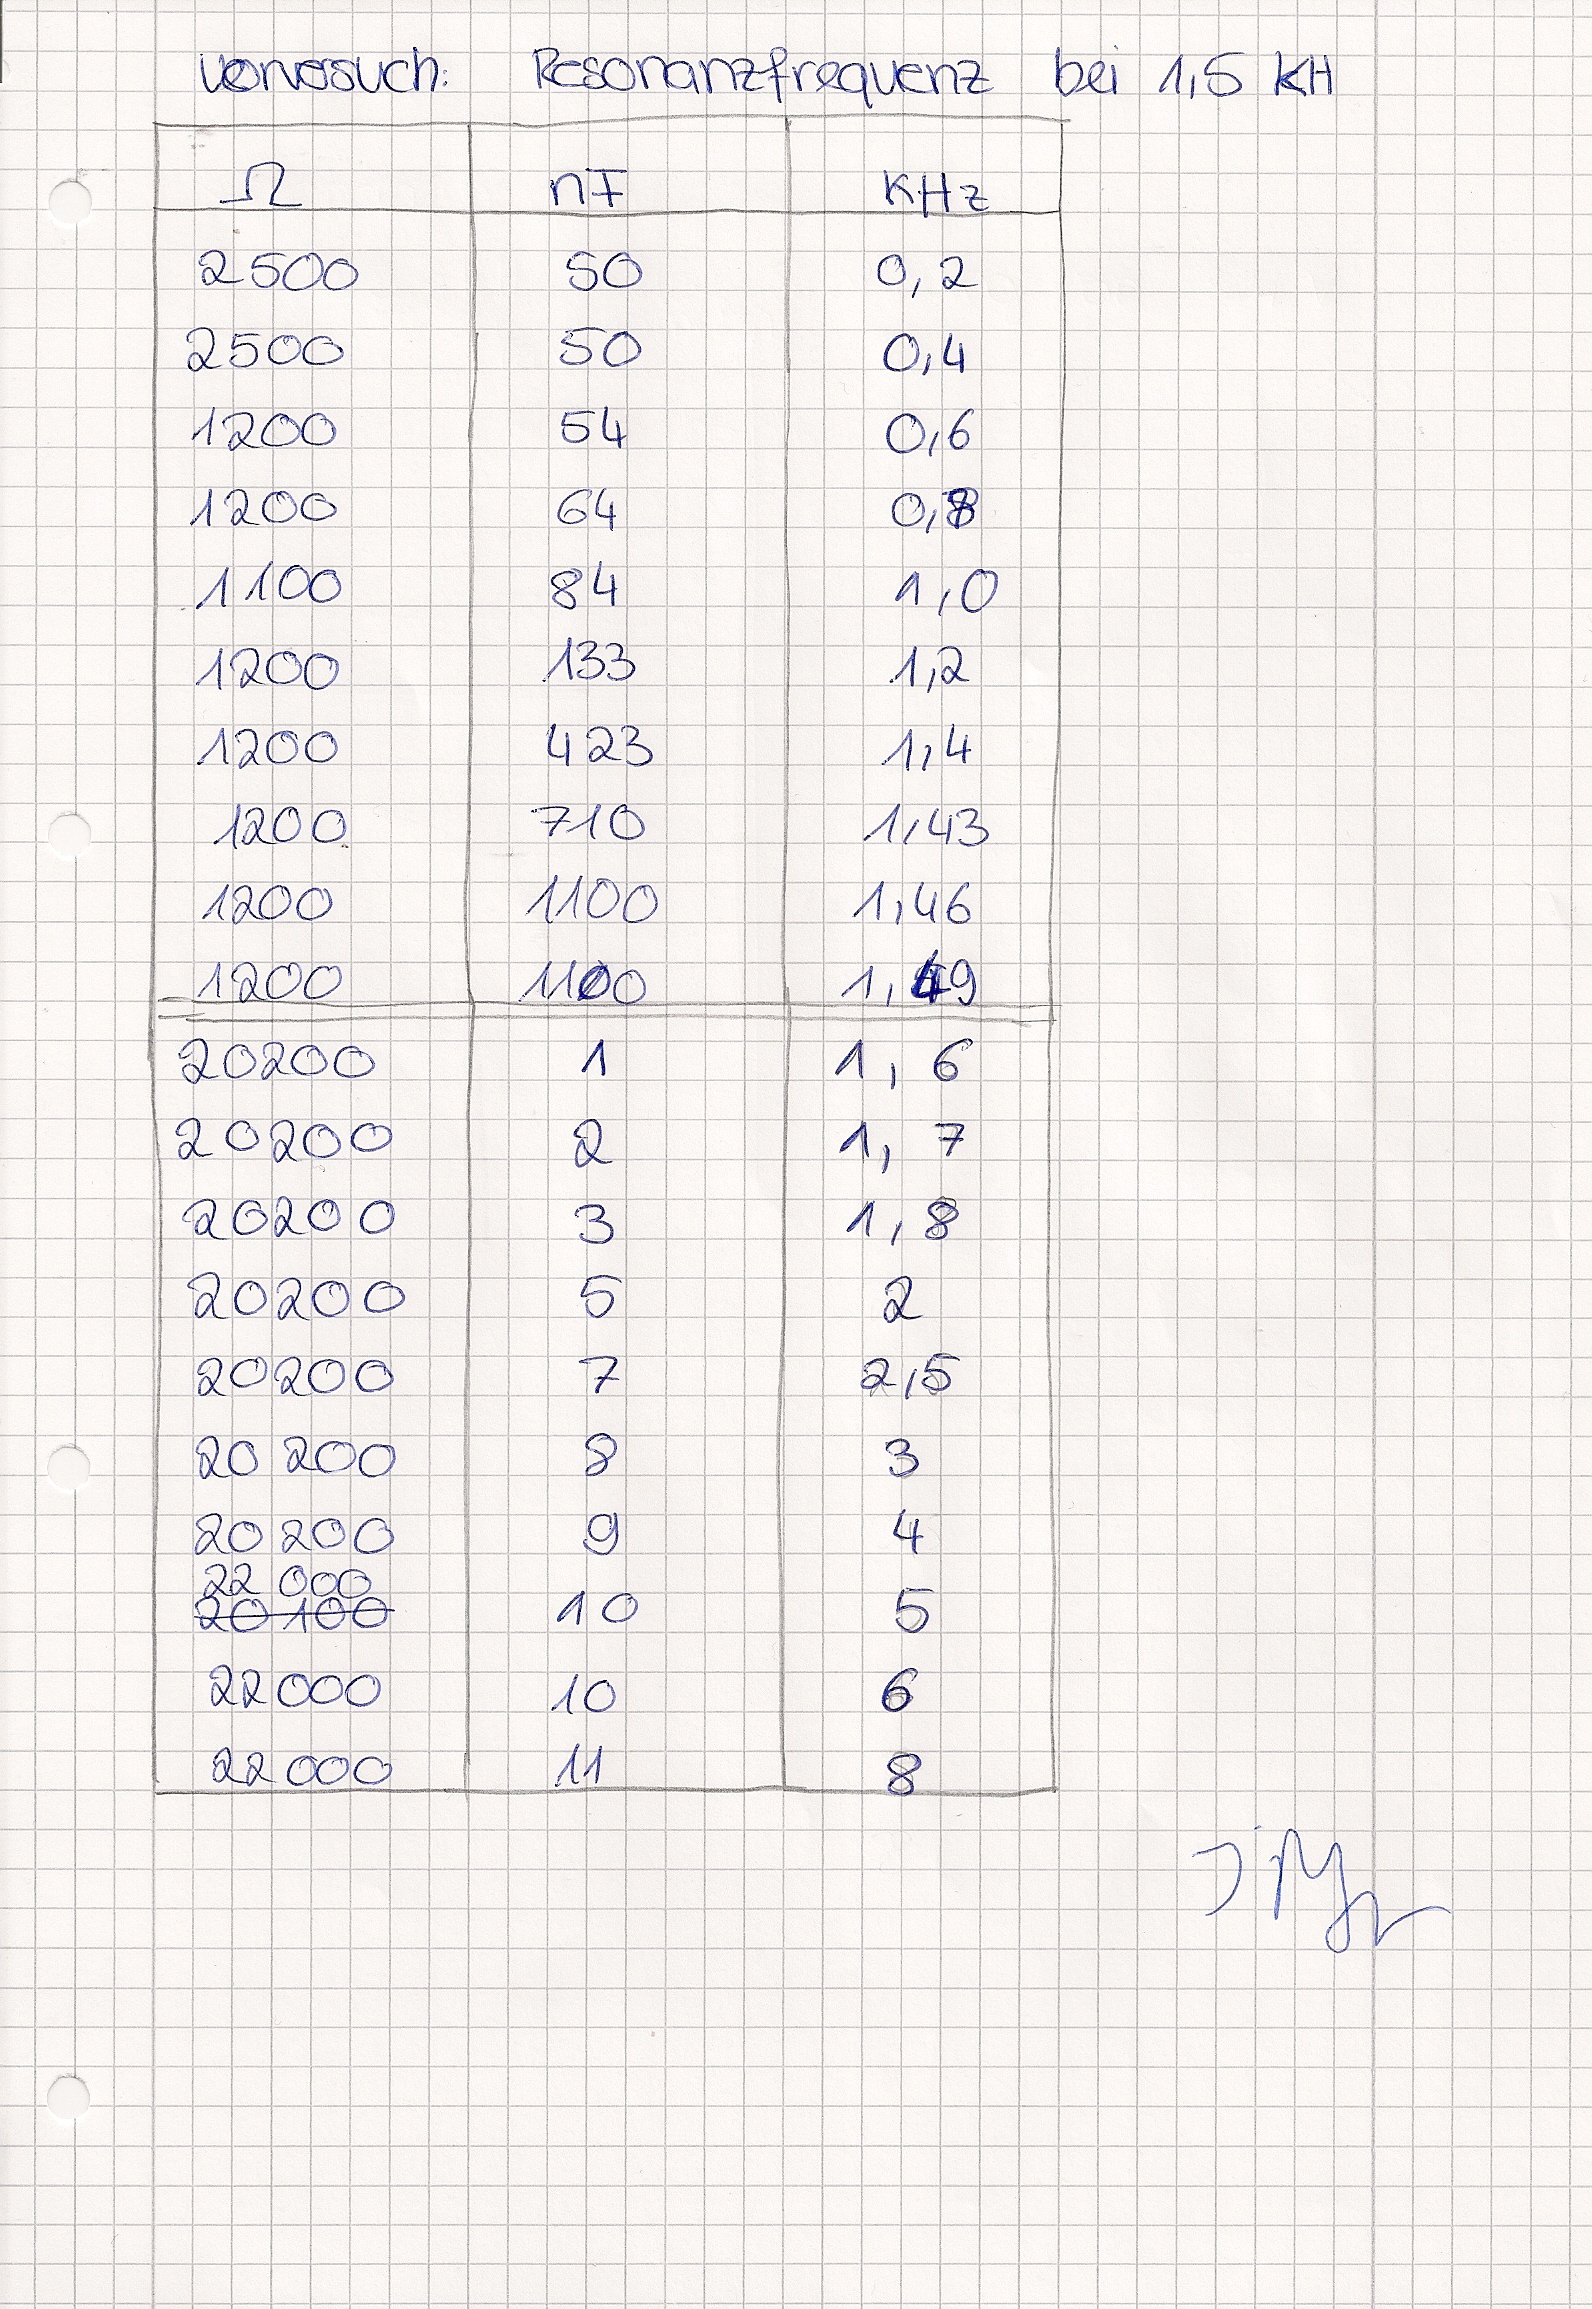 Vorversuch: Resonanzfrequenz bei 1,5 KH
Ω nF KHz
2500 50 0,2
2500 50 0,4
1200 54 0,6
1200 64 0,8
1100 84 1,0
1200 133 1,2
1200 423 1,4
1200 710 1,43
1200 1100 1,46
1200 1100 1,49
20200 1 1,6
20200 2 1,7
20200 3 1,8
20200 5 2
20200 7 2,5
20 200 8 3
20 200 9 4
22 000
20 100 10 5
22000 10 6
22 000 11 8